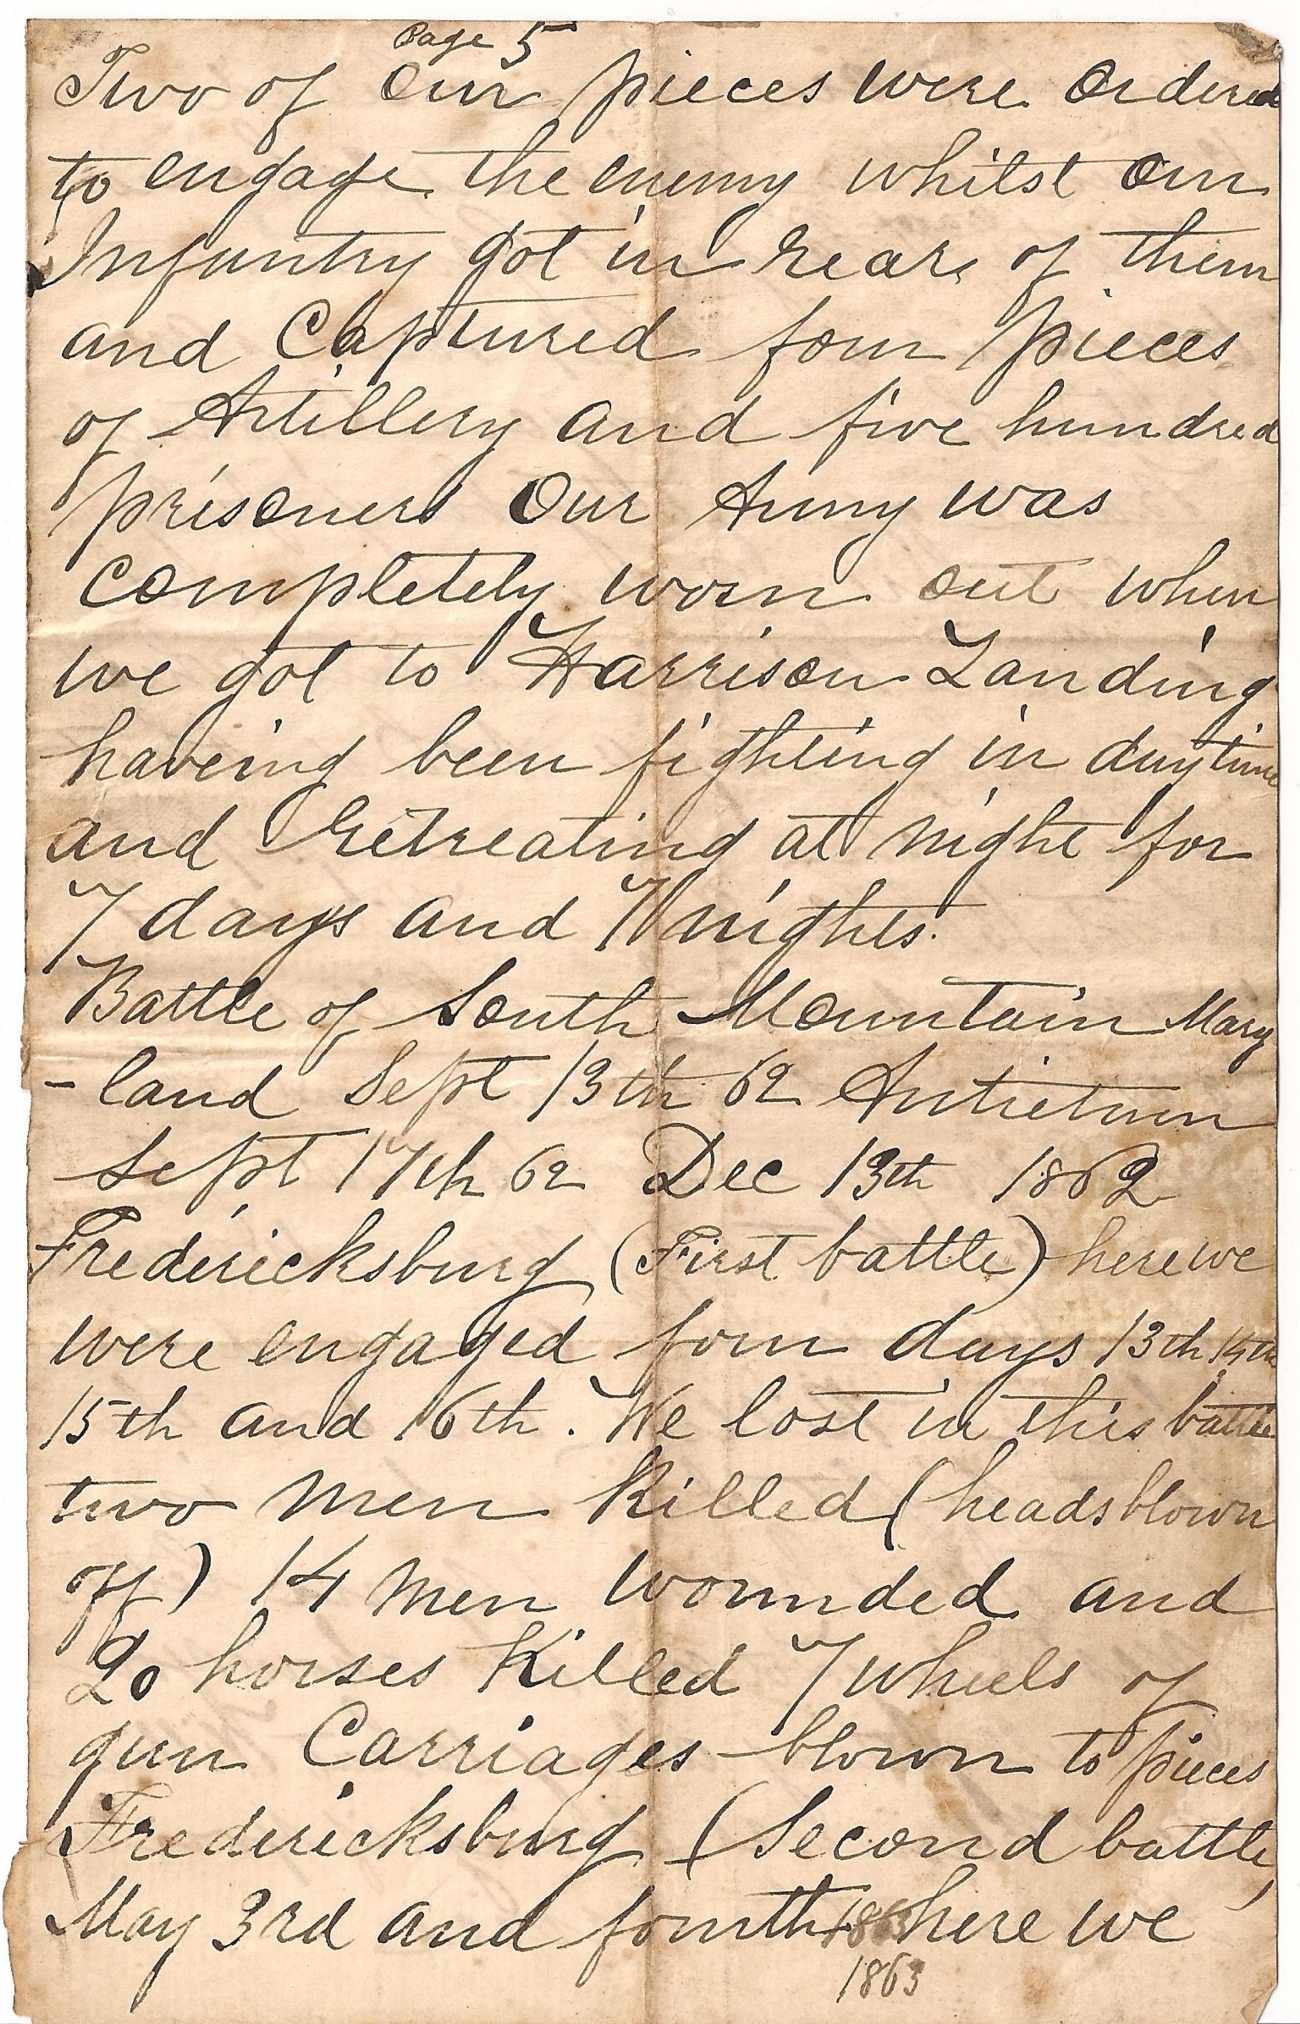 Page 5
Two of our pieces were ordered
to engage the enemy whilst our
Infantry got in rear of them
and Captured four pieces
of Artillery and five hundred
prisoners Our Army was
completely worn out when
we got to Harrison Landing
haveing been fighting in daytime
and Retreating at night for
7 days and 7 nights.
Battle of South Mountain Mary
-land Sept 13th 62 Antietum
Sept 17th 62 Dec 13th 1862
Fredericksburg (First battle) here we
were engaged four days 13th 14th
15th and 16th. We lost in this battle
two men Killed (heads blown
off) 14 men wounded and
20 horses Killed 7 wheels of
gun Carriages blown to pieces
Fredericksburg (Second battle)
May 3rd and fourth 1863 here we
1863